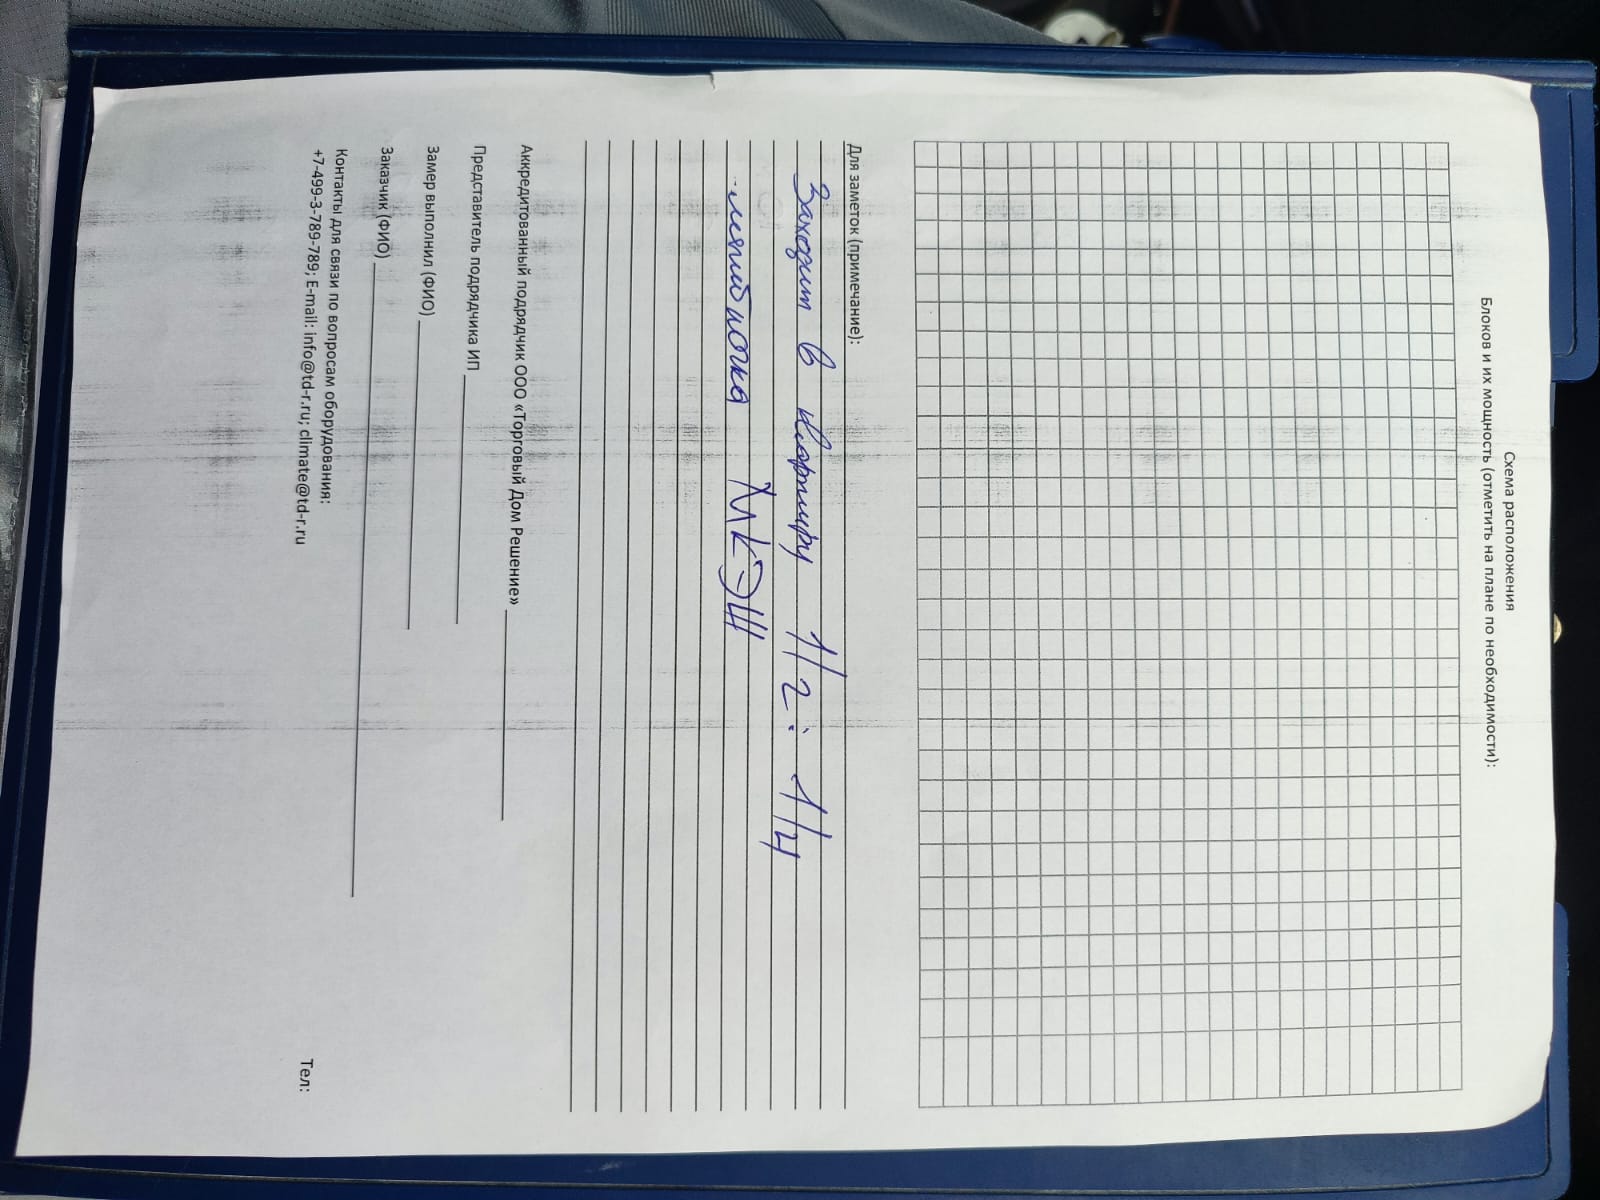 Схема расположения
Блоков и их мощность (отметить на плане по необходимости):
Для заметок (примечание):
Заходит в квартиру 1/2 : 1/4
межблочка МКЭШ
Аккредитованный подрядчик ООО «Торговый Дом Решение»
Представитель подрядчика ИП
Замер выполнил (ФИО)
Заказчик (ФИО)
Контакты для связи по вопросам оборудования:
+7-499-3-789-789; E-mail: info@td-r.ru; climate@td-r.ru Тел: